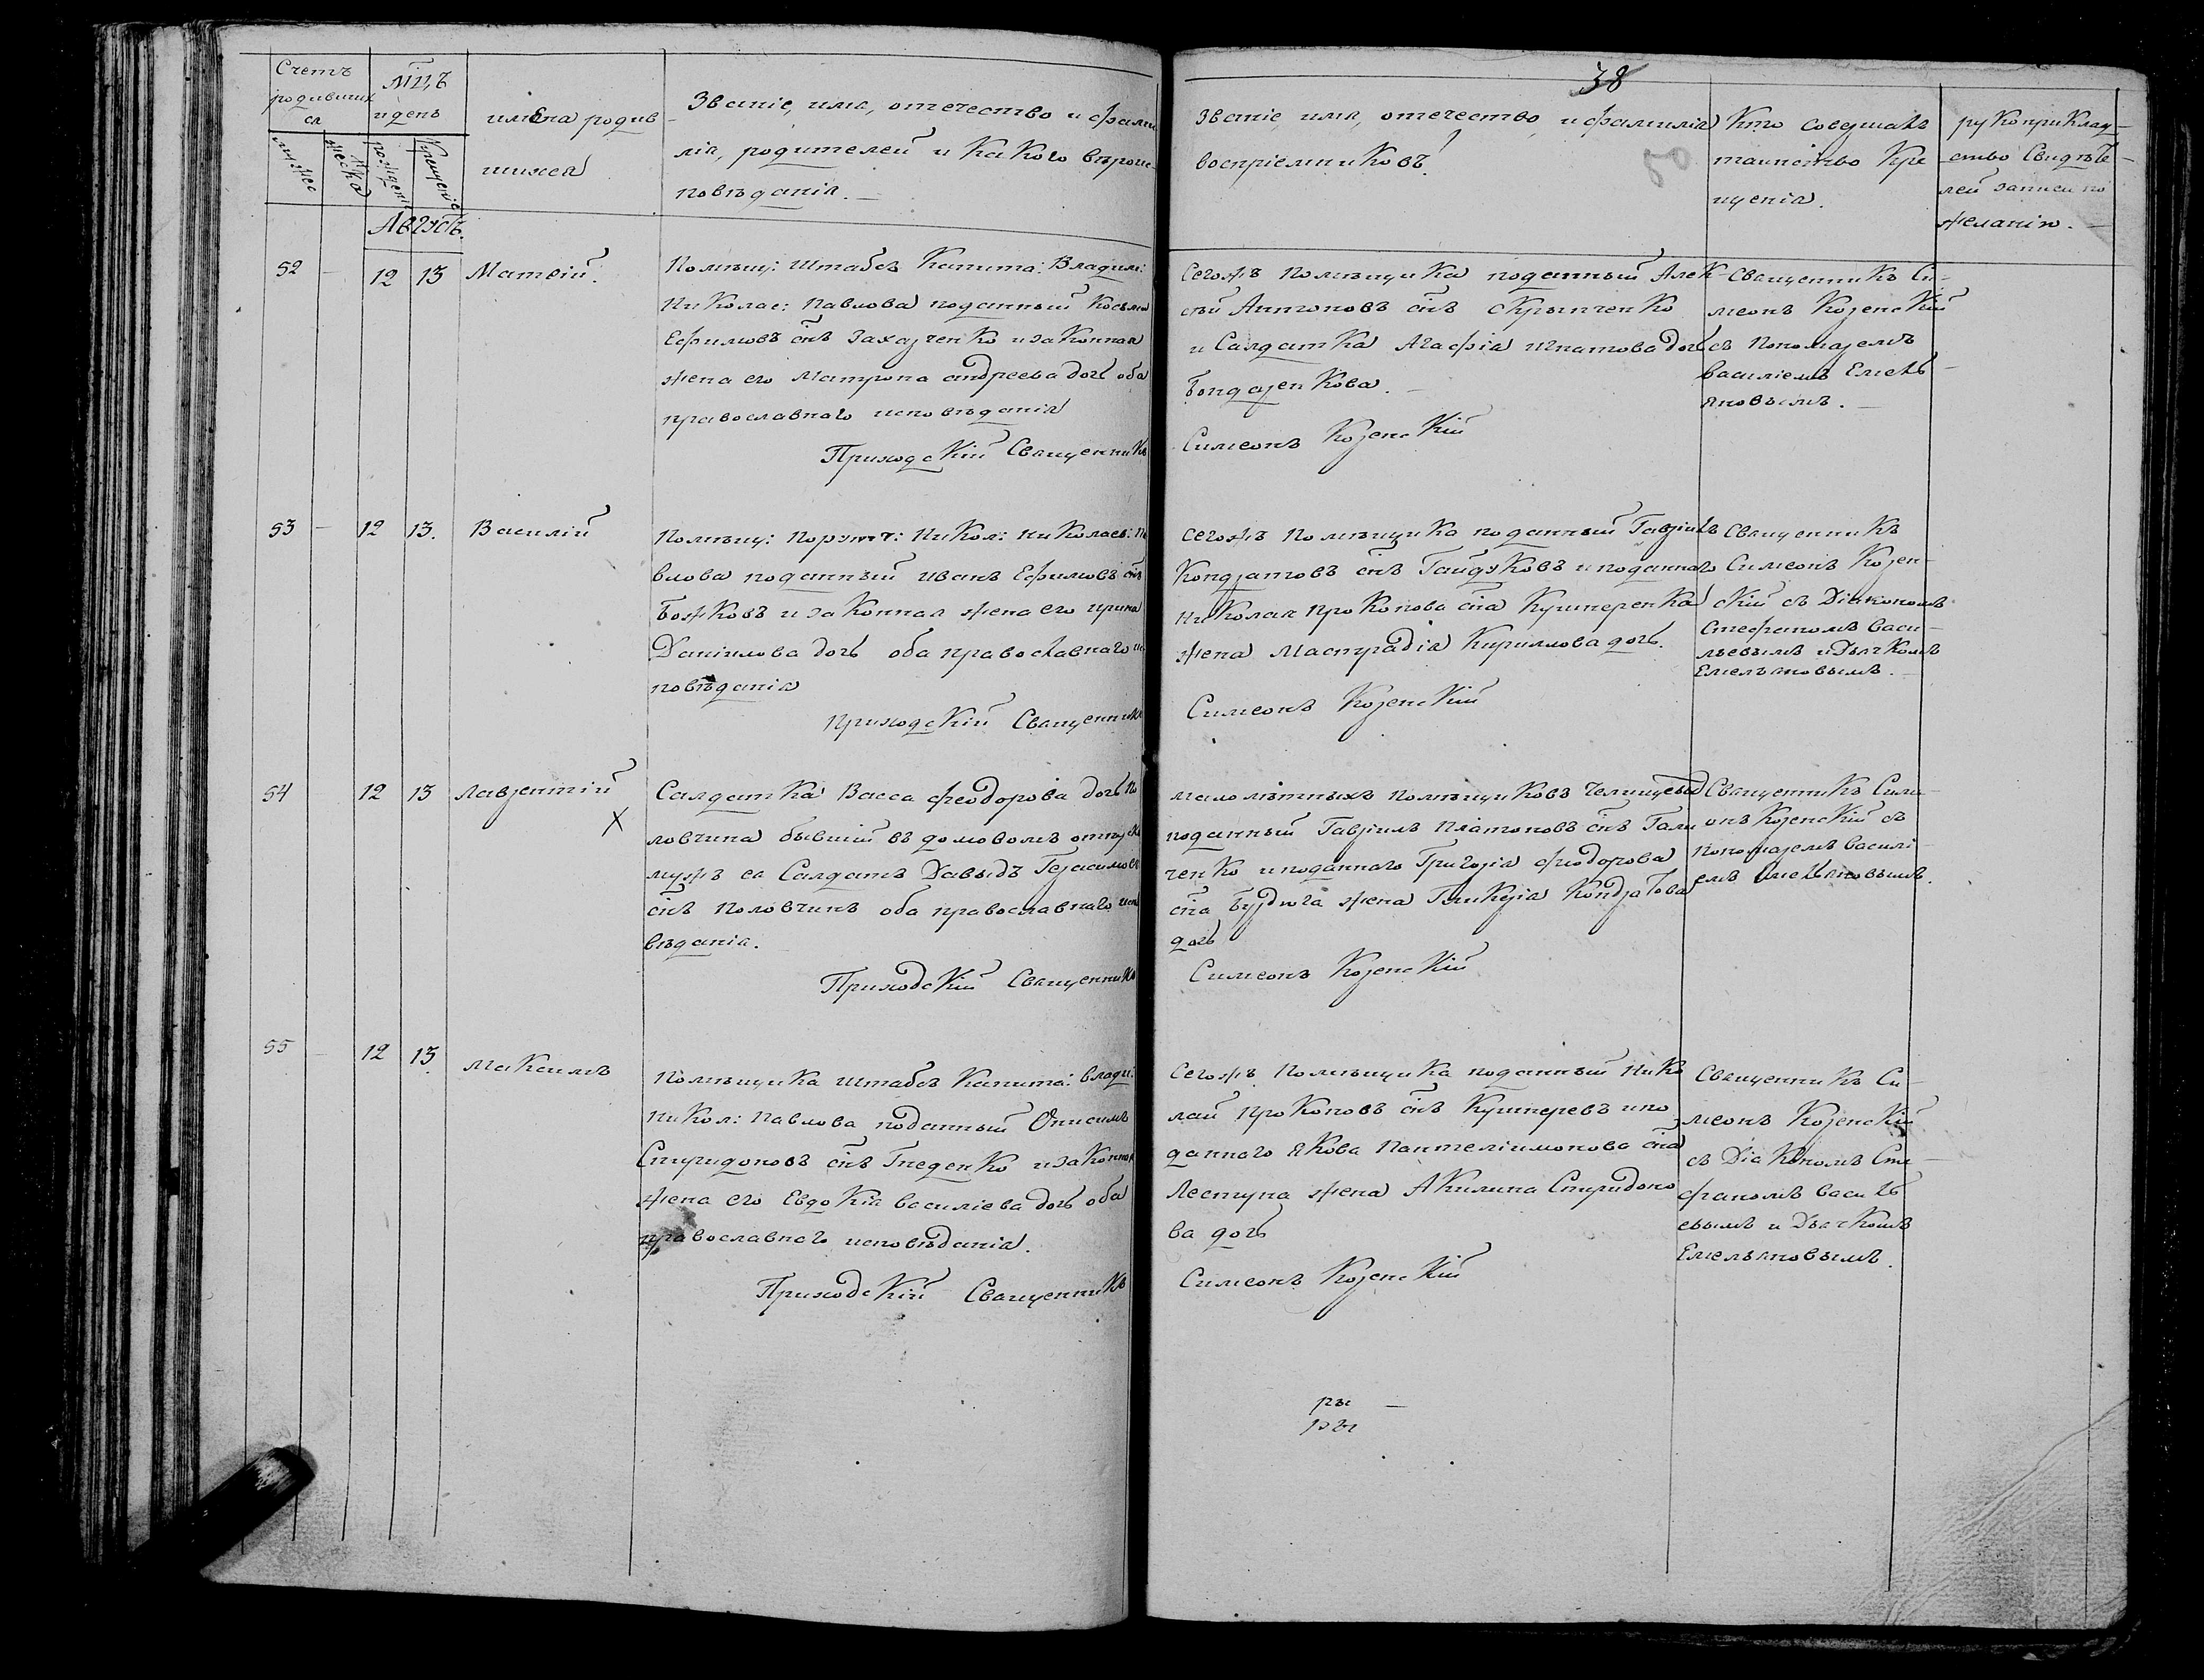 38
50
Счетъ
родивших
ся
мужес
жеска
Мцъ
и день
рожденія
крещеніе
имена родив
шихся
Званіе, имя, отечество и фами
лія, родителей и какого вѣроис
повѣданія.
Званіе имя, отечество, и фамилія
воспріемниковъ.
Кто совершалъ
таинство кре
щенія.
рукоприклад
ство свидѣте
лей записи по
желанію.
Августъ.
52 - 12 13 Матѳій.
Помѣщ: Штабсъ Капита: Владим:
Николае: Павлова подданный Косьма
Ефимовъ снъ Захарченко и законная
жена его Матрона андреева дочь оба
православнаго исповѣданія
Приходскій Священникъ
Сегожъ помѣщика подданный Алек
сѣй Антоновъ снъ Скрынченко
и Салдатка Агафія Игнатова дочь
Бондаренкова.
Симеонъ Козенскій
Священникъ Си
меонъ Козенскій
съ Пономаремъ
Василіемъ Емель
яновымъ.
53 - 12 13. Василій
Помѣщ: Порутч: Никол: Николаев: Па
влова подданный Иванъ Ефимовъ снъ
Божковъ и законная жена его Ирина
Даніилова дочь оба православнаго ис
повѣданія
Приходскій Священникъ
Сегожъ помѣщика подданный Гавріилъ
Кондратовъ снъ Гайдуковъ и подданнаго
Николая Прокопова сна Кушнеренка
жена Мастрадія Кириллова дочь.
Симеонъ Козенскій
Священникъ
Симеонъ Козен
скій съ Діакономъ
Стефаномъ Васи
льевымъ и Дьячкомъ
Емельяновымъ.
54 12 13 Лаврентій
X
Салдатка Васса Феодорова дочь По
ловчина бывшій въ домовомъ отпуск
мужъ ея Салдатъ Давыдъ Герасимовъ
снъ Половчинъ оба православнаго испо
вѣданія.
Приходскій Священникъ
малолѣтныхъ помѣщиковъ Челищевы
подданный Гавріилъ Платоновъ снъ Гали
ченко и подданнаго Григорія Феодорова
сна Бурдюга жена Гликерія Кондратова
дочь
Симеонъ Козенскій
Священникъ Симе
онъ Козенскій съ
Пономаремъ Василі
емъ Емельяновымъ.
55 - 12 13. Максимъ
Помѣщика Штабсъ Капита: Влади:
Никол: Павлова подданный Онисимъ
Спиридоновъ снъ Гнеденко и законная
жена его Евдокія Василіева дочь оба
православнаго исповѣданія.
Приходскій Священникъ
Сегожъ Помѣщика подданный Нико
лай Прокоповъ снъ Кушнеревъ и по
даннаго Якова Пантелімонова сна
Лестуна жена Акилина Спиридоно
ва дочь
Симеонъ Козенскій
Священникъ Си
меонъ Козенскій
съ Діакономъ Сте
фаномъ Василь
евымъ и Дьячкомъ
Емельяновымъ.